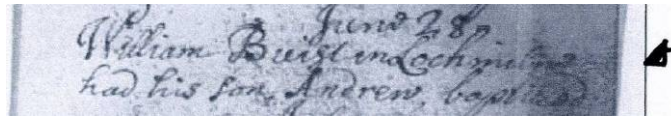 June 28,
William Buist in Lochmilne
had his son, Andrew, baptized